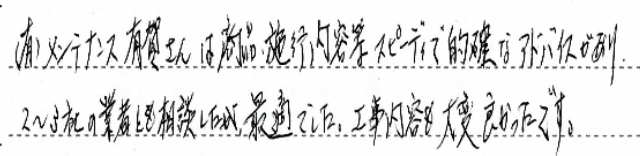 (有)メンテナンス有賀さんは商品、施行内容等スピーディで的確なアドバイスがあり、
2〜3社の業者とも相談したが、最適でした。工事内容も大変良かったです。